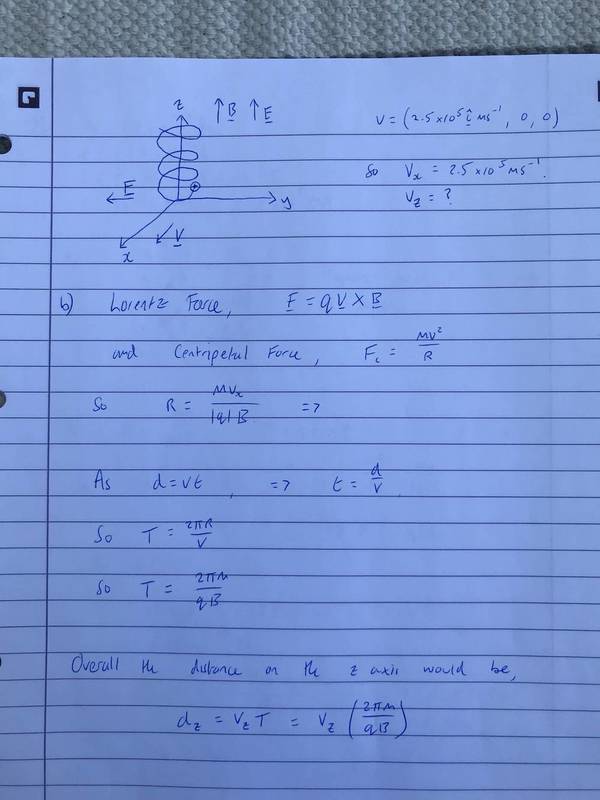 z ↑B ↑E
V = (2.5×10⁵ î ms⁻¹, 0, 0)
So Vx = 2.5×10⁵ ms⁻¹.
Vz = ?
F
y
V
x
b) Lorentz Force, F = qV×B
and Centripetal Force, Fc = MV²/R
So R = MVx/|q|B =>
As d = vt, => t = d/v
So T = 2πR/V
So T = 2πM/qB
Overall the distance on the z axis would be,
dz = Vz T = Vz (2πM/qB)